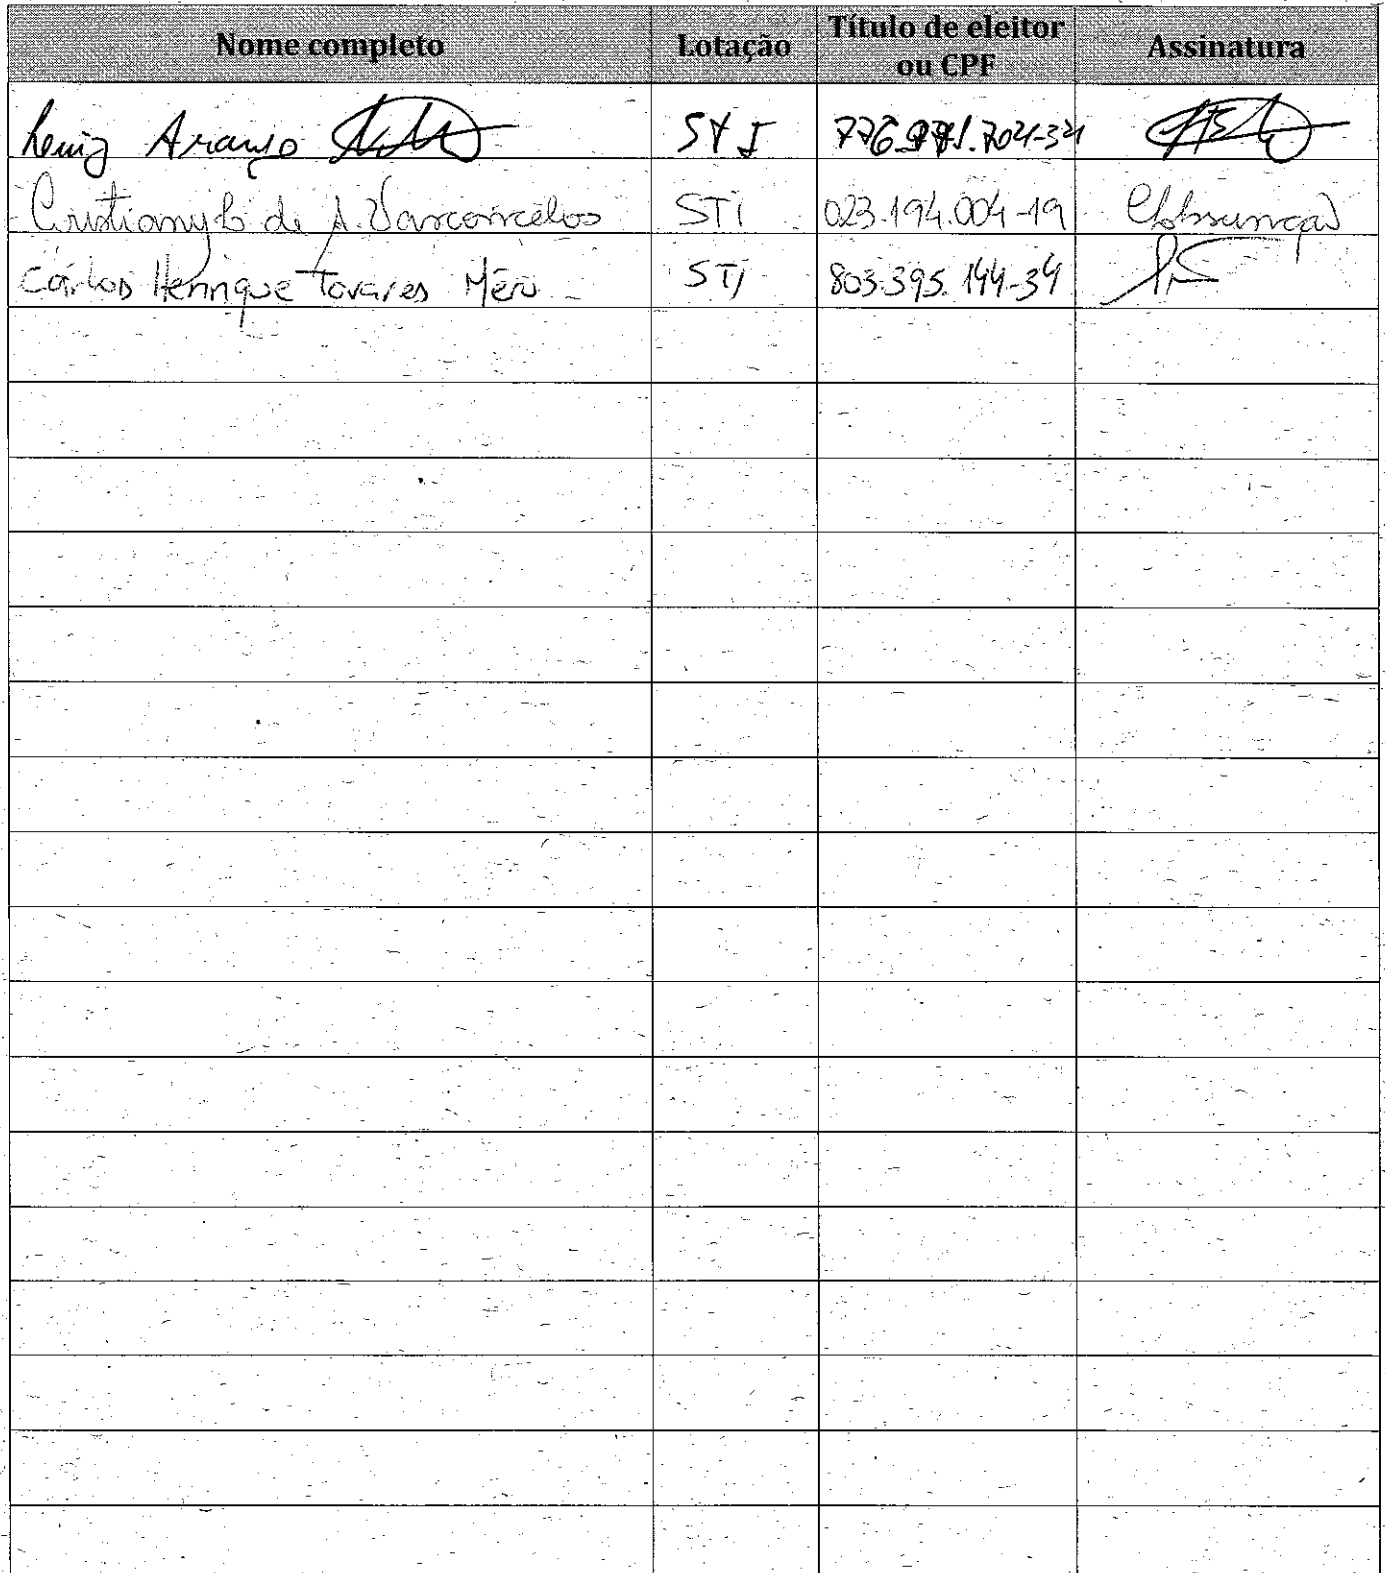 Nome completo Lotação Título de eleitor ou CPF Assinatura
Luiz Araujo STI
Cristiany de A. Vasconcelos STI 023.194.004-19 CAssunção
Carlos Henrique Tavares Méro STI 803.395.144-34